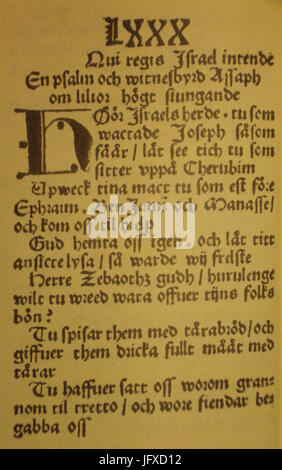 LXXX
Qui regis Israel intende
En psalm och witnesbyrd Assaph
om lilior högt siungande
HÖr Israels herde. tu som
wactade Joseph såsom
fåår/ låt see tich tu som
sitter vppå Cherubim
Vpweck tina mact tu som est före
Ephraim. Ben Jamin och Manasse/
och kom oss til hielp
Gud hemta oss igen. och låt titt
ansicte lysa/ så warde wij frelste
Herre Zebaoth gudh/ huru lenge
wilt tu wreed wara offuer tijns folks
bön?
Tu spisar them med tårabröd/ och
giffuer them dricka fullt måått med
tårar
Tu haffuer satt oss worom gran-
nom til tretto/ och wore fiendar be-
gabba oss
alamy
www.alamy.com - JFXD12